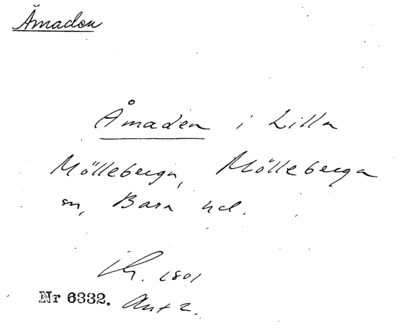 Åmaden
Åmaden i Lilla
Mölleberga, Mölleberga
sn, Bara hd.
1801
Nr 6332. Akt 2.